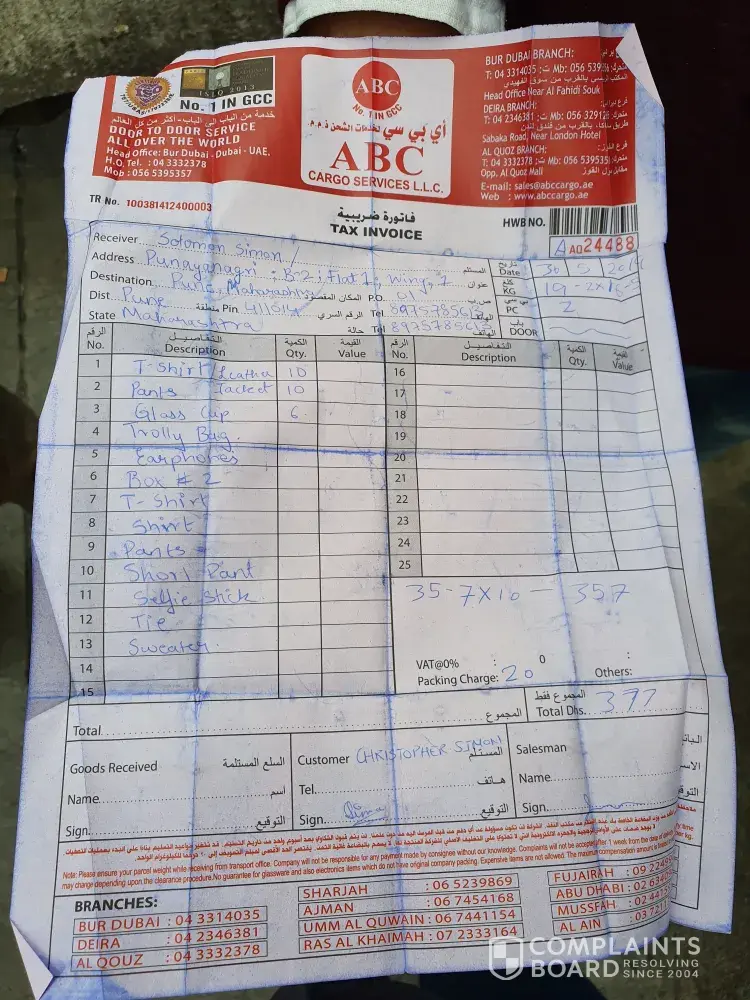 ISLO 2013
No. 1 IN GCC
خدمة من الباب إلى الباب - أكثر من كل العالم
DOOR TO DOOR SERVICE
ALL OVER THE WORLD
Head Office: Bur Dubai - Dubai - UAE.
H.O. Tel. : 04 3332378
Mob : 056 5395357
ABC
No. 1 IN GCC
أي بي سي لخدمات الشحن ذ.م.م.
ABC
CARGO SERVICES L.L.C.
BUR DUBAI BRANCH:
T: 04 3314035 :ت Mb: 056 539
Head Office Near Al Fahidi Souk
DEIRA BRANCH:
T: 04 2346381 :ت Mb: 056 329
Sabaka Road, Near London Hotel
AL QUOZ BRANCH:
T: 04 3332378 :ت Mb: 056 539535
Opp. Al Quoz Mall
E-mail: sales@abccargo.ae
Web : www.abccargo.ae
TR No. 100381412400003
فاتورة ضريبية
TAX INVOICE
HWB NO.
A AO24488
Receiver Solomon Simon / المستلم
Address Punayanagri ; B-2 ; Flat 1, Wing, 7 عنوان
Destination Pune, Maharashtra المكان المقصود P.O. 01 ص.ب
Dist. Pune منطقة Pin 411014 الرقم السري Tel. الهاتف
State Maharashtra حالة Tel الهاتف
تاريخ Date 30 5
KG 19
بي سي PC 2
باب DOOR
الرقم No. التفاصيل Description الكمية Qty. القيمة Value
1 T-Shirt / Leather 10
2 Pants Jacket 10
3 Glass Cup 6
4 Trolly Bag.
5 Earphones
6 Box # 2
7 T-Shirt
8 Shirt
9 Pants
10 Short Pant
11 Selfie Stick
12 Tie
13 Sweater.
14
15
الرقم No. التفاصيل Description الكمية Qty. القيمة Value
16
17
18
19
20
21
22
23
24
25
35-7X10 - 357
VAT@0% : 0
Packing Charge: 20 Others:
Total المجموع
المجموع فقط
Total Dhs. 377
Goods Received السلع المستلمة
Name اسم
Sign. التوقيع
Customer CHRISTOPHER SIMON المستلم
Tel. هاتف
Sign. التوقيع
Salesman
Name
Sign.
Note: Please ensure your parcel weight while receiving from transport office. Company will not be responsible for any payment made by consignee without our knowledge. Complaints will not be accepted after 1 week from the date of
may change depending upon the clearance procedure.No guarantee for glassware and also electronics items which do not have original company packing. Expensive items are not allowed. The maximum compensation amount is
BRANCHES:
BUR DUBAI : 04 3314035
DEIRA : 04 2346381
AL QOUZ : 04 3332378
SHARJAH : 06 5239869
AJMAN : 06 7454168
UMM AL QUWAIN : 06 7441154
RAS AL KHAIMAH : 07 2333164
FUJAIRAH : 09
ABU DHABI : 02
MUSSFAH : 02
AL AIN : 03
COMPLAINTS
BOARD RESOLVING
SINCE 2004